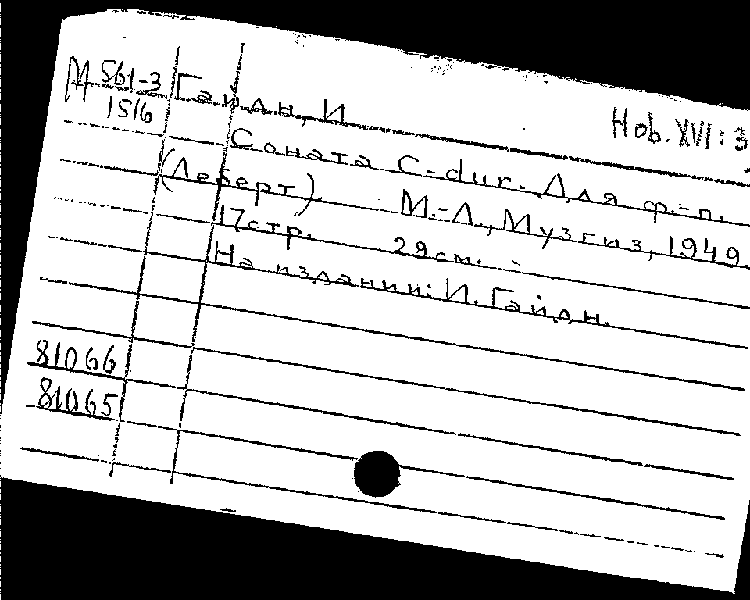 М 561-3 Гайдн, И
1516 Hob. XVI: 3
Соната C-dur. Для ф.-п.
(Леберт) М.-Л., Музгиз, 1949
17 стр. 29 см. -
На издании: И. Гайдн.
81066
81065